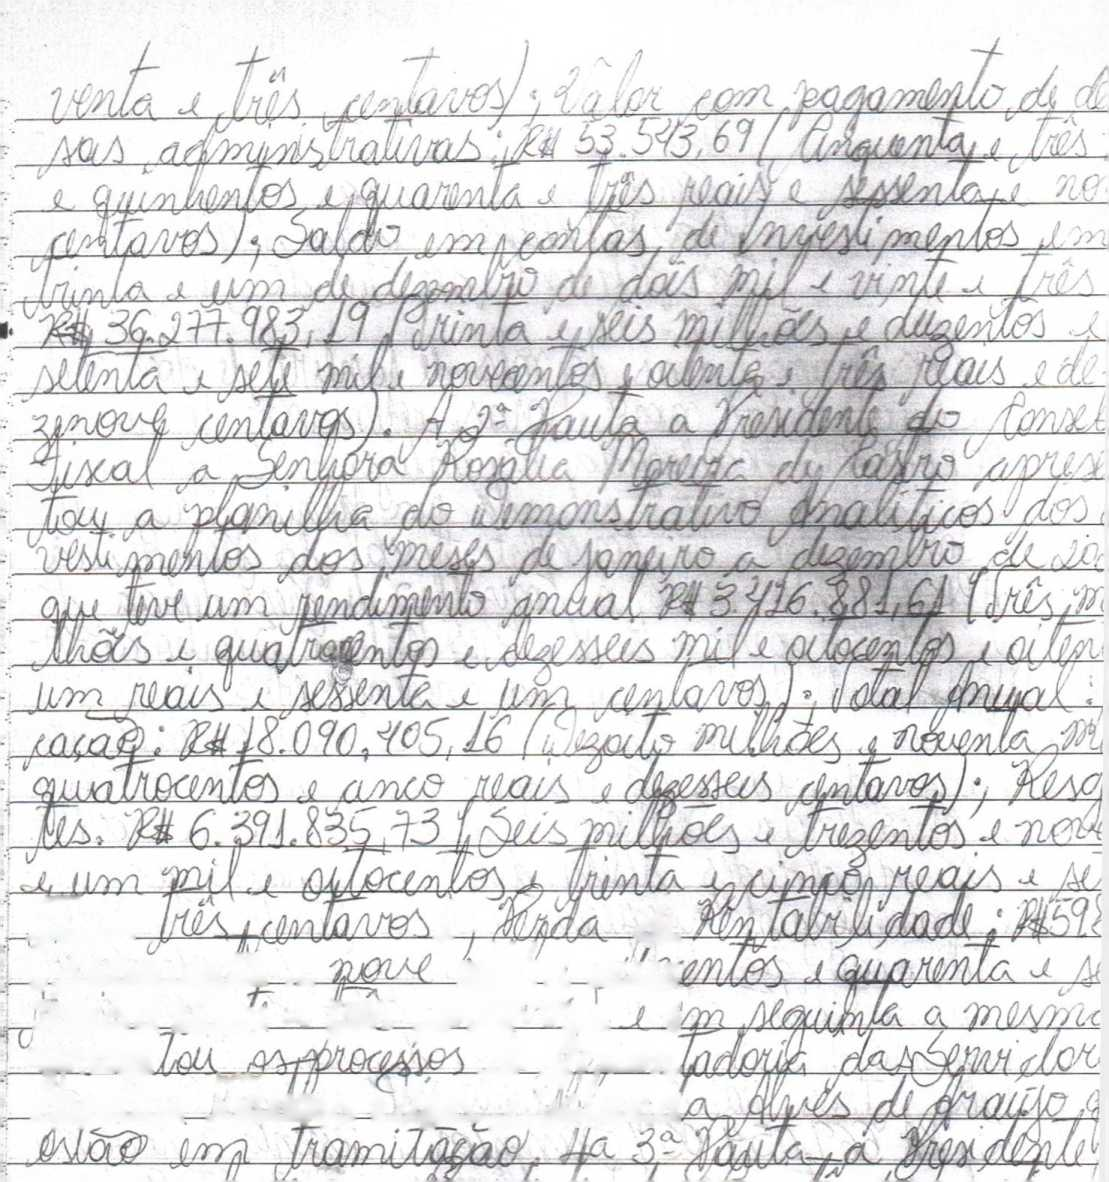 venta e três centavos); Valor com pagamento de de
sas administrativas: R$ 53.543,69 (Cinquenta e três
e quinhentos e quarenta e três reais e sessenta e no
centavos); Saldo em contas de Investimentos em
trinta e um de dezembro de dois mil e vinte e três
R$ 36.277.983,19 (Trinta e seis milhões e duzentos e
setenta e sete mil e novecentos e oitenta e três reais e de
zenove centavos). A 2ª Pauta a Presidente do Consel
Fiscal a Senhora Rosalia Moreira de Castro aprese
tou a planilha do Demonstrativo Analíticos dos
vestimentos dos meses de janeiro a dezembro de
que teve um rendimento anual R$ 3.416.881,61 (Três m
lhões e quatrocentos e dezesseis mil e oitocentos e oiten
um reais e sessenta e um centavos); Total Anual:
cação: R$ 18.090.405,16 (Dezoito milhões e noventa mi
quatrocentos e cinco reais e dezesseis centavos); Resg
tes. R$ 6.391.835,73 (Seis milhões e trezentos e nove
e um mil e oitocentos e trinta e cinco reais e se
três centavos, Renda Rentabilidade: R$ 598
nove entos e quarenta e se
e m seguinta a mesma
tou os processos tadoria das Servidor
a Alves de Araújo,
estão em tramitação, Na 3ª Pauta a Presidente